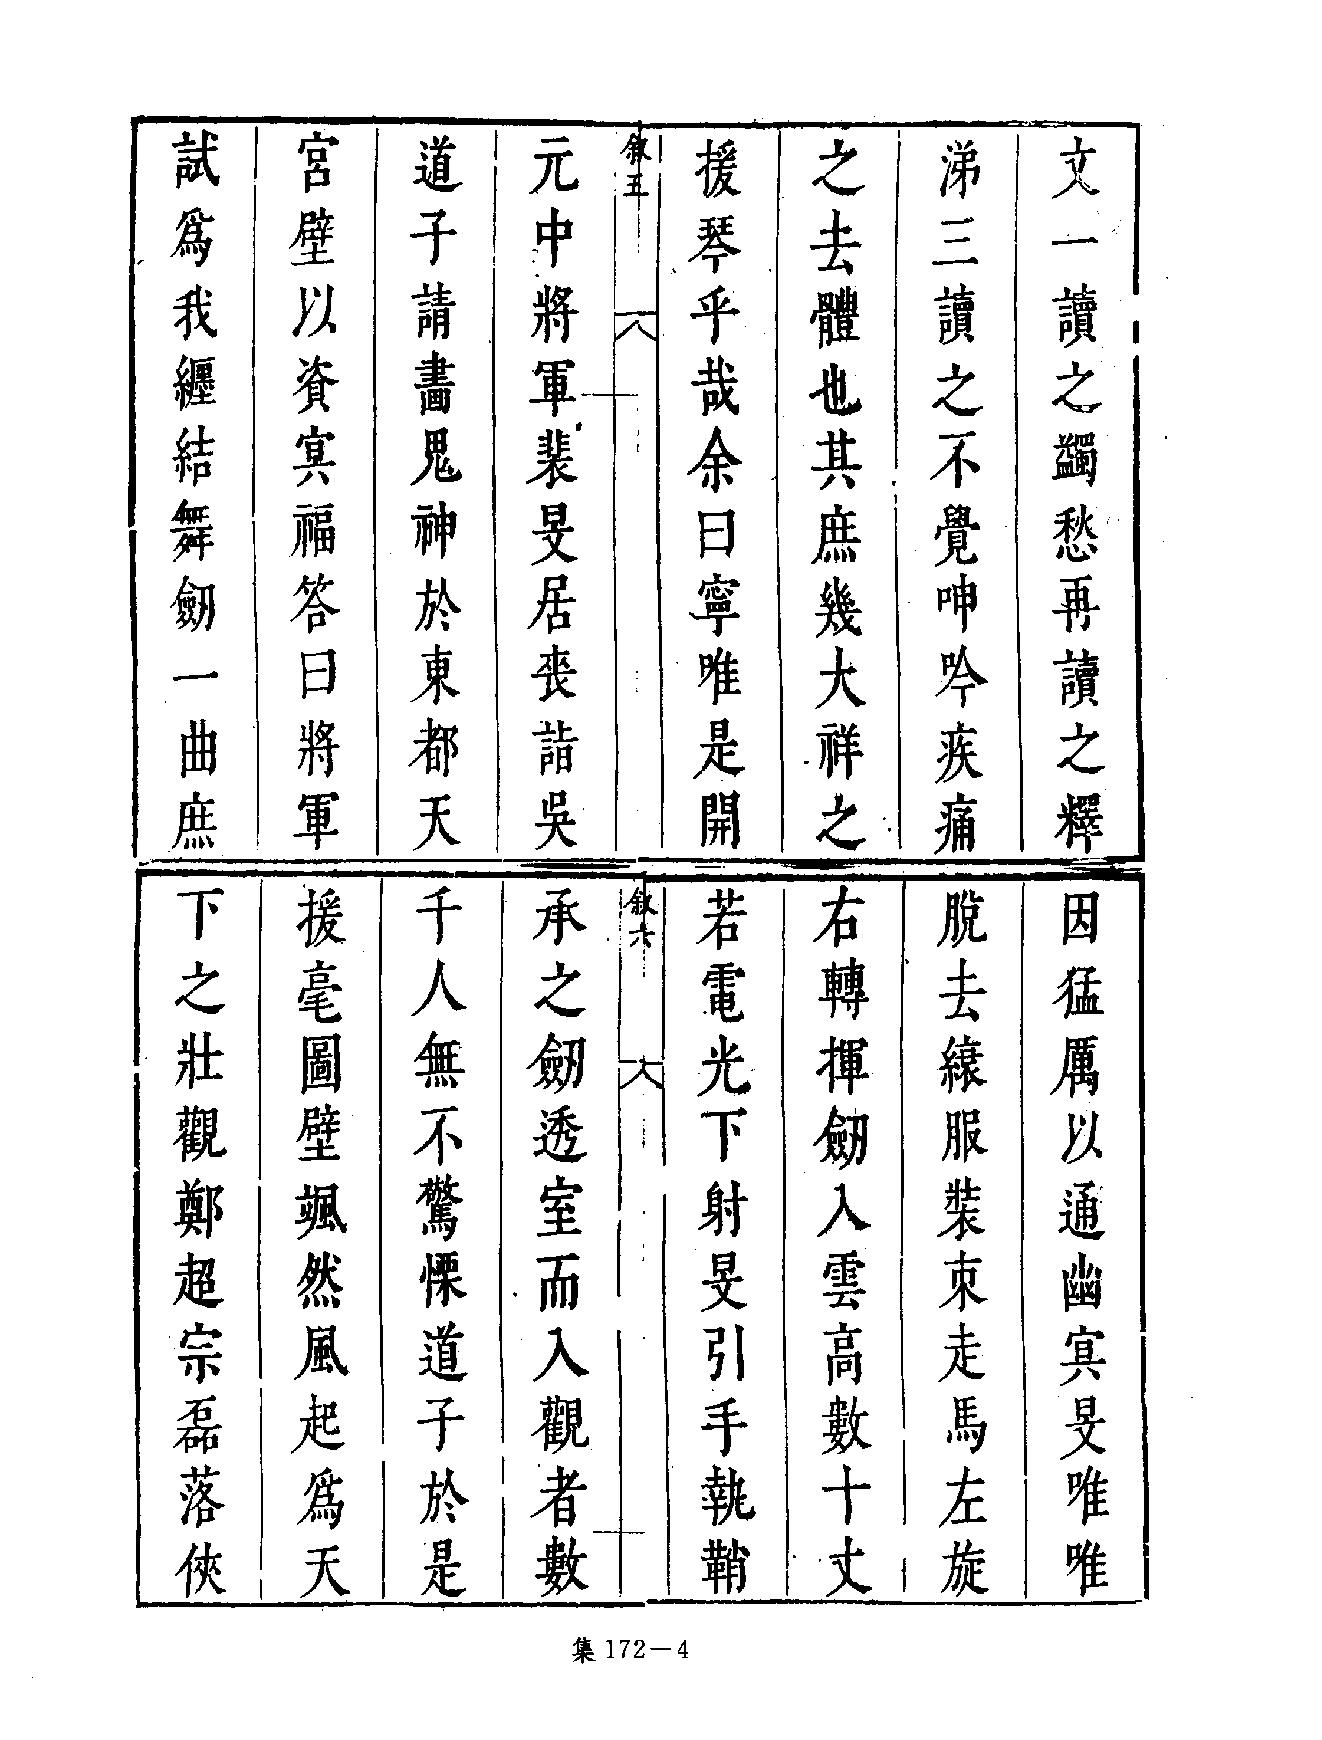 文一讀之蠲愁再讀之釋
涕三讀之不覺呻吟疾痛
之去體也其庶幾大祥之
援琴乎哉余曰寧唯是開
叙五
八
元中將軍裴旻居喪詣吳
道子請畫鬼神於東都天
宮壁以資冥福答曰將軍
試爲我纏結舞劒一曲庶
因猛厲以通幽冥旻唯唯
脫去縗服裝束走馬左旋
右轉揮劒入雲高數十丈
若電光下射旻引手執鞘
叙六
承之劒透室而入觀者數
千人無不驚慄道子於是
援毫圖壁颯然風起爲天
下之壯觀鄭超宗磊落俠
集 172－4